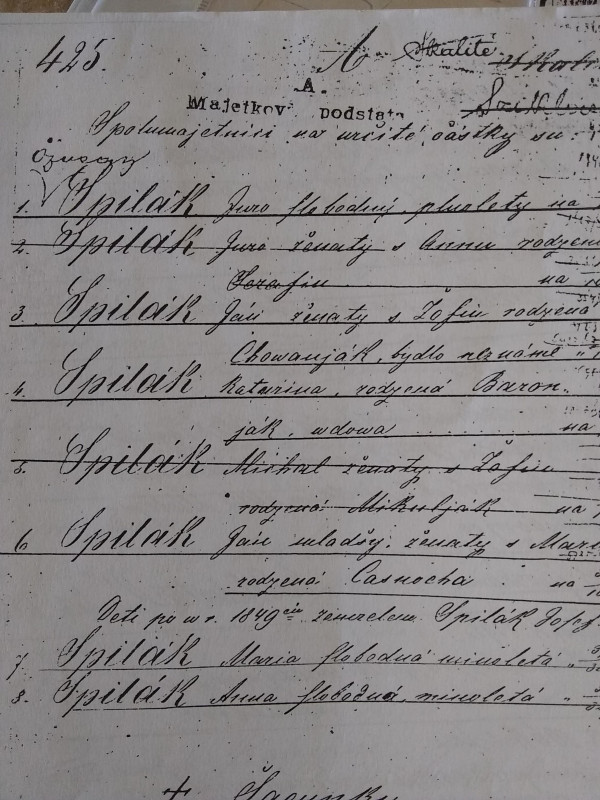 425. A Skalité
A.
Majetková podstata
Spolumajetníci na určité částky su:
1. Spilák Juro slobodný, plnoletý na
2. Spilák Juro ženatý s Annu rodzenú
Serafín na
3. Spilák Ján ženatý s Žofiu rodzená
Chowanják, bydlo neznámé
4. Spilák Katarina, rodzená Baron-
ják, wdowa na
5. Spilák Michal ženatý s Žofiu
rodzená Mikuljak na
6 Spilák Ján mladšý, ženatý s Mari
rodzená Časnocha na
Deti po w r. 1849 zemrelem Spilák Jozef
7. Spilák Maria slobodná minoletá
8. Spilák Anna slobodná, minoletá